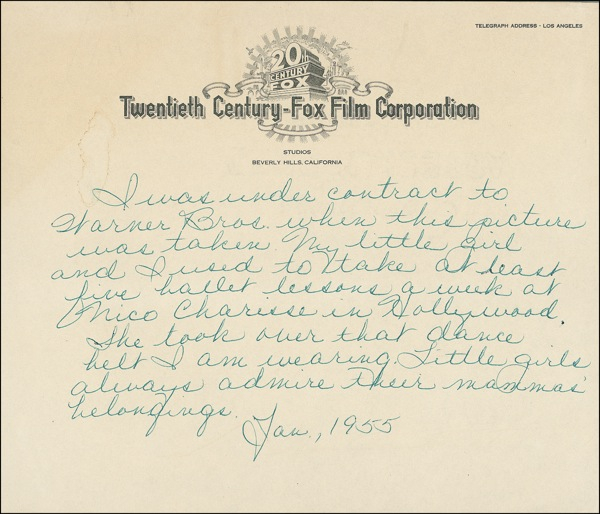 TELEGRAPH ADDRESS - LOS ANGELES
20th
CENTURY
FOX
Twentieth Century-Fox Film Corporation
STUDIOS
BEVERLY HILLS, CALIFORNIA
I was under contract to
Warner Bros. when this picture
was taken. My little girl
and I used to take at least
five ballet lessons a week at
Nico Charisse in Hollywood.
She took over that dance
belt I am wearing. Little girls
always admire their mammas'
belongings.
Jan., 1955